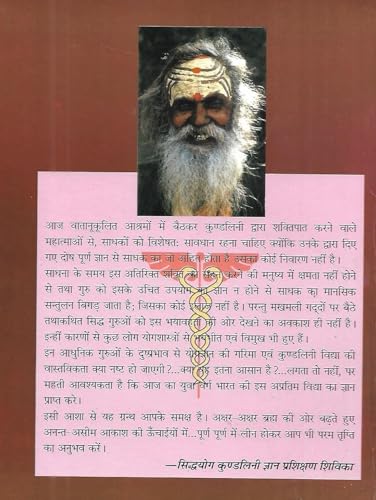 आज वातानुकूलित आश्रमों में बैठकर कुण्डलिनी द्वारा शक्तिपात करने वाले
महात्माओं से, साधकों को विशेषतः सावधान रहना चाहिए क्योंकि उनके द्वारा दिए
गए दोष पूर्ण ज्ञान से साधक का जो अहित होता है उसका कोई निवारण नहीं है।
साधना के समय इस अतिरिक्त शक्ति को सहन करने की मनुष्य में क्षमता नहीं होने
से तथा गुरु को इसके उचित उपयोग का ज्ञान न होने से साधक का मानसिक
सन्तुलन बिगड़ जाता है; जिसका कोई इलाज नहीं है। परन्तु मखमली गद्दों पर बैठे
तथाकथित सिद्ध गुरुओं को इस भयावहता की ओर देखने का अवकाश ही नहीं है।
इन्हीं कारणों से कुछ लोग योगशास्त्रों से भयभीत एवं विमुख भी हुए हैं।
इन आधुनिक गुरुओं के दुष्प्रभाव से योगशास्त्र की गरिमा एवं कुण्डलिनी विद्या की
वास्तविकता क्या नष्ट हो जाएगी ?...क्या यह इतना आसान है ?...लगता तो नहीं, पर
महती आवश्यकता है कि आज का युवा वर्ग भारत की इस अप्रतिम विद्या का ज्ञान
प्राप्त करे।
इसी आशा से यह ग्रन्थ आपके समक्ष है। अक्षर-अक्षर ब्रह्म की ओर बढ़ते हुए
अनन्त-असीम आकाश की ऊँचाईयों में...पूर्ण पूर्ण में लीन होकर आप भी परम तृप्ति
का अनुभव करें।
—सिद्धयोग कुण्डलिनी ज्ञान प्रशिक्षण शिविका